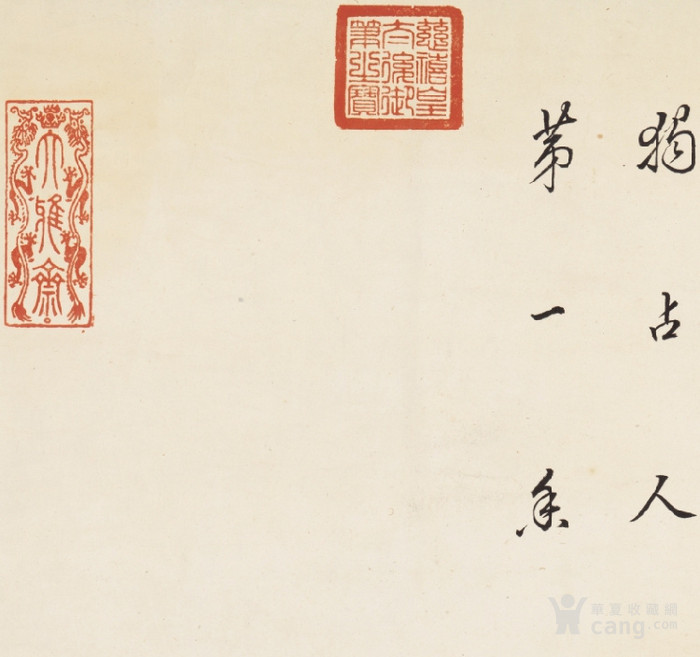 獨占人
第一香
慈禧皇
太后御
筆之寶
大雅齋
華夏收藏網
cang.com